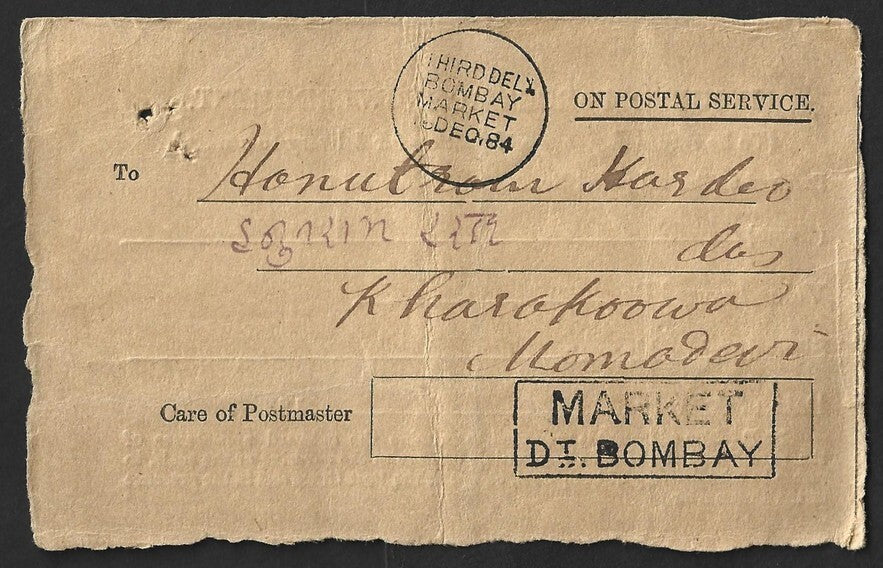 THIRD DELY
BOMBAY
MARKET
DEC.84
ON POSTAL SERVICE.
To Honutram Hardeo
das
Kharakoowa
Momadevi
Care of Postmaster
MARKET
DT. BOMBAY